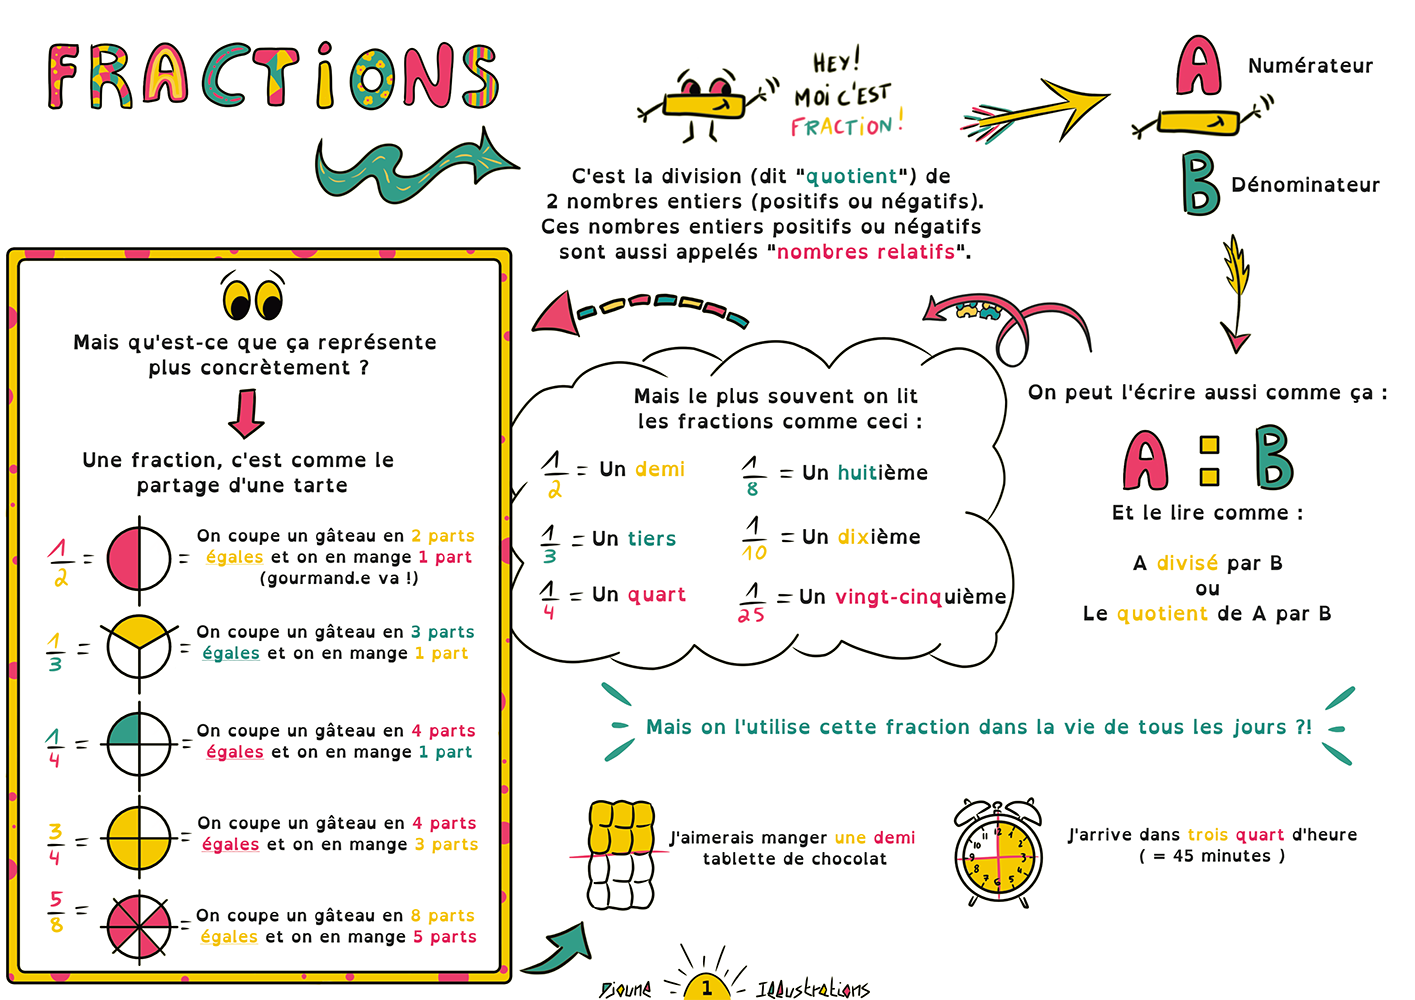 FRACTIONS
HEY!
MOI C'EST
FRACTION!
C'est la division (dit "quotient") de
2 nombres entiers (positifs ou négatifs).
Ces nombres entiers positifs ou négatifs
sont aussi appelés "nombres relatifs".
A Numérateur
B Dénominateur
On peut l'écrire aussi comme ça :
A : B
Et le lire comme :
A divisé par B
ou
Le quotient de A par B
Mais le plus souvent on lit
les fractions comme ceci :
1/2 = Un demi
1/3 = Un tiers
1/4 = Un quart
1/8 = Un huitième
1/10 = Un dixième
1/25 = Un vingt-cinquième
Mais qu'est-ce que ça représente
plus concrètement ?
Une fraction, c'est comme le
partage d'une tarte
1/2 = = On coupe un gâteau en 2 parts
égales et on en mange 1 part
(gourmand.e va !)
1/3 = = On coupe un gâteau en 3 parts
égales et on en mange 1 part
1/4 = = On coupe un gâteau en 4 parts
égales et on en mange 1 part
3/4 = = On coupe un gâteau en 4 parts
égales et on en mange 3 parts
5/8 = = On coupe un gâteau en 8 parts
égales et on en mange 5 parts
Mais on l'utilise cette fraction dans la vie de tous les jours ?!
J'aimerais manger une demi
tablette de chocolat
12 1 2 3 4 5 6 7 8 9 10 11
J'arrive dans trois quart d'heure
( = 45 minutes )
Pioune 1 Illustrations